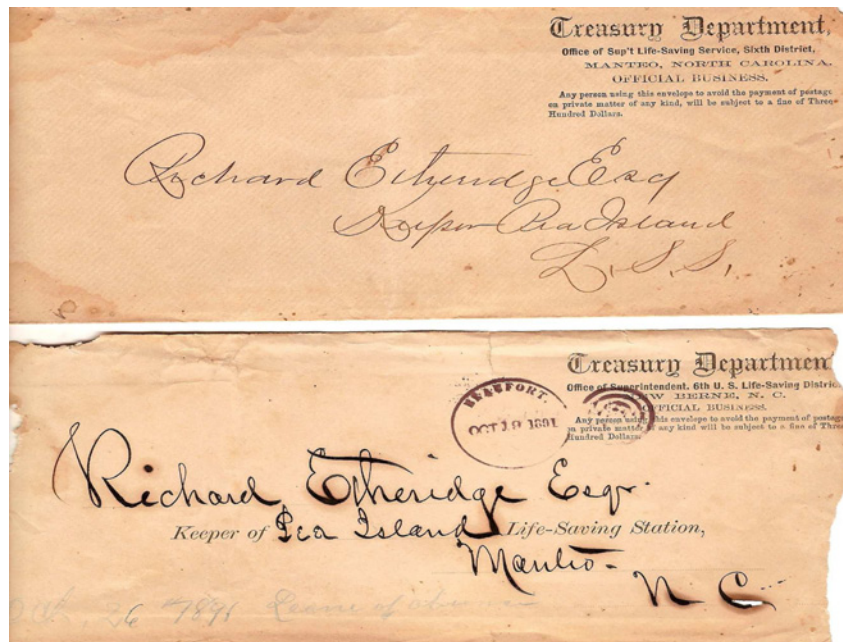 Treasury Department,
Office of Sup't Life-Saving Service, Sixth District,
MANTEO, NORTH CAROLINA.
OFFICIAL BUSINESS.
Any person using this envelope to avoid the payment of postage
on private matter of any kind, will be subject to a fine of Three
Hundred Dollars.
Richard Etheridge Esq
Keeper Pea Island
L. S. S.
Treasury Departmen
Office of Superintendent, 6th U. S. Life-Saving Distric
NEW BERNE, N. C.
OFFICIAL BUSINESS.
Any person using this envelope to avoid the payment of postage
on private matter of any kind will be subject to a fine of Three
Hundred Dollars.
BEAUFORT.
OCT 1891
Richard Etheridge Esqr.
Keeper of Pea Island Life-Saving Station,
Manteo-
N C
26 1891 Leave of absence